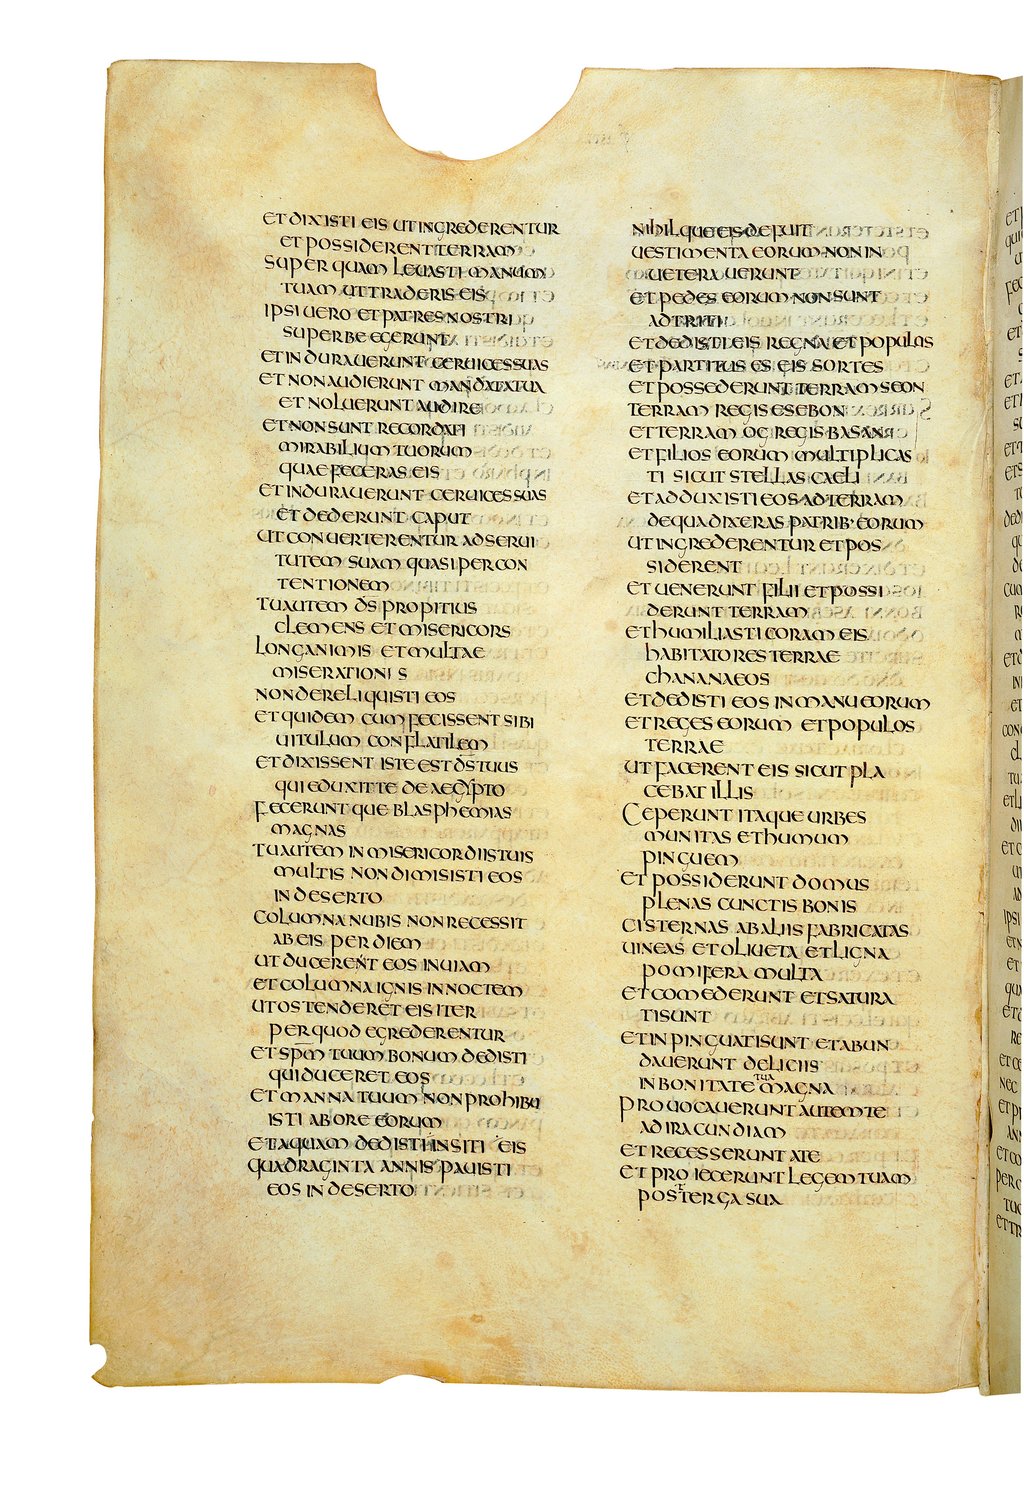 ET DIXISTI EIS UT INGREDERENTUR
ET POSSIDERENT TERRAM
SUPER QUAM LEUASTI MANUM
TUAM UT TRADERIS EIS
IPSI UERO ET PATRES NOSTRI
SUPERBE EGERUNT
ET INDURAUERUNT CERUICES SUAS
ET NON AUDIERUNT MANDATA TUA
ET NOLUERUNT AUDIRE
ET NON SUNT RECORDATI
MIRABILIUM TUORUM
QUAE FECERAS EIS
ET INDURAUERUNT CERUICES SUAS
ET DEDERUNT CAPUT
UT CONUERTERENTUR AD SERUI
TUTEM SUAM QUASI PER CON
TENTIONEM
TU AUTEM D̄S PROPITIUS
CLEMENS ET MISERICORS
LONGANIMIS ET MULTAE
MISERATIONIS
NON DERELIQUISTI EOS
ET QUIDEM CUM FECISSENT SIBI
UITULUM CONFLATILEM
ET DIXISSENT ISTE EST D̄S TUUS
QUI EDUXIT TE DE AEGYPTO
FECERUNTQUE BLASPHEMIAS
MAGNAS
TU AUTEM IN MISERICORDIIS TUIS
MULTIS NON DIMISISTI EOS
IN DESERTO
COLUMNA NUBIS NON RECESSIT
AB EIS PER DIEM
UT DUCERENT EOS IN UIAM
ET COLUMNA IGNIS IN NOCTEM
UT OSTENDERET EIS ITER
PER QUOD EGREDERENTUR
ET SP̄M TUUM BONUM DEDISTI
QUI DUCERET EOS
ET MANNA TUUM NON PROHIBU
ISTI AB ORE EORUM
ET AQUAM DEDISTI IN SITI EIS
QUADRAGINTA ANNIS PAUISTI
EOS IN DESERTO
NIHILQUE EIS DEFUIT
UESTIMENTA EORUM NON IN
UETERAUERUNT
ET PEDES EORUM NON SUNT
ADTRITI
ET DEDISTI EIS REGNA ET POPULOS
ET PARTITUS ES EIS SORTES
ET POSSEDERUNT TERRAM SEON
TERRAM REGIS ESEBON
ET TERRAM OG REGIS BASAN
ET FILIOS EORUM MULTIPLICAS
TI SICUT STELLAS CAELI
ET ADDUXISTI EOS AD TERRAM
DE QUA DIXERAS PATRIB· EORUM
UT INGREDERENTUR ET POS
SIDERENT
ET UENERUNT FILII ET POSSI
DERUNT TERRAM
ET HUMILIASTI CORAM EIS
HABITATORES TERRAE
CHANANAEOS
ET DEDISTI EOS IN MANU EORUM
ET REGES EORUM ET POPULOS
TERRAE
UT FACERENT EIS SICUT PLA
CEBAT ILLIS
CEPERUNT ITAQUE URBES
MUNITAS ET HUMUM
PINGUEM
ET POSSIDERUNT DOMUS
PLENAS CUNCTIS BONIS
CISTERNAS AB ALIIS FABRICATAS
UINEAS ET OLIUETA ET LIGNA
POMIFERA MULTA
ET COMEDERUNT ET SATURA
TI SUNT
ET INPINGUATI SUNT ET ABUN
DAUERUNT DELICIIS
IN BONITATE TUA MAGNA
PROUOCAUERUNT AUTEM TE
AD IRACUNDIAM
ET RECESSERUNT A TE
ET PROIECERUNT LEGEM TUAM
POST TERGA SUA